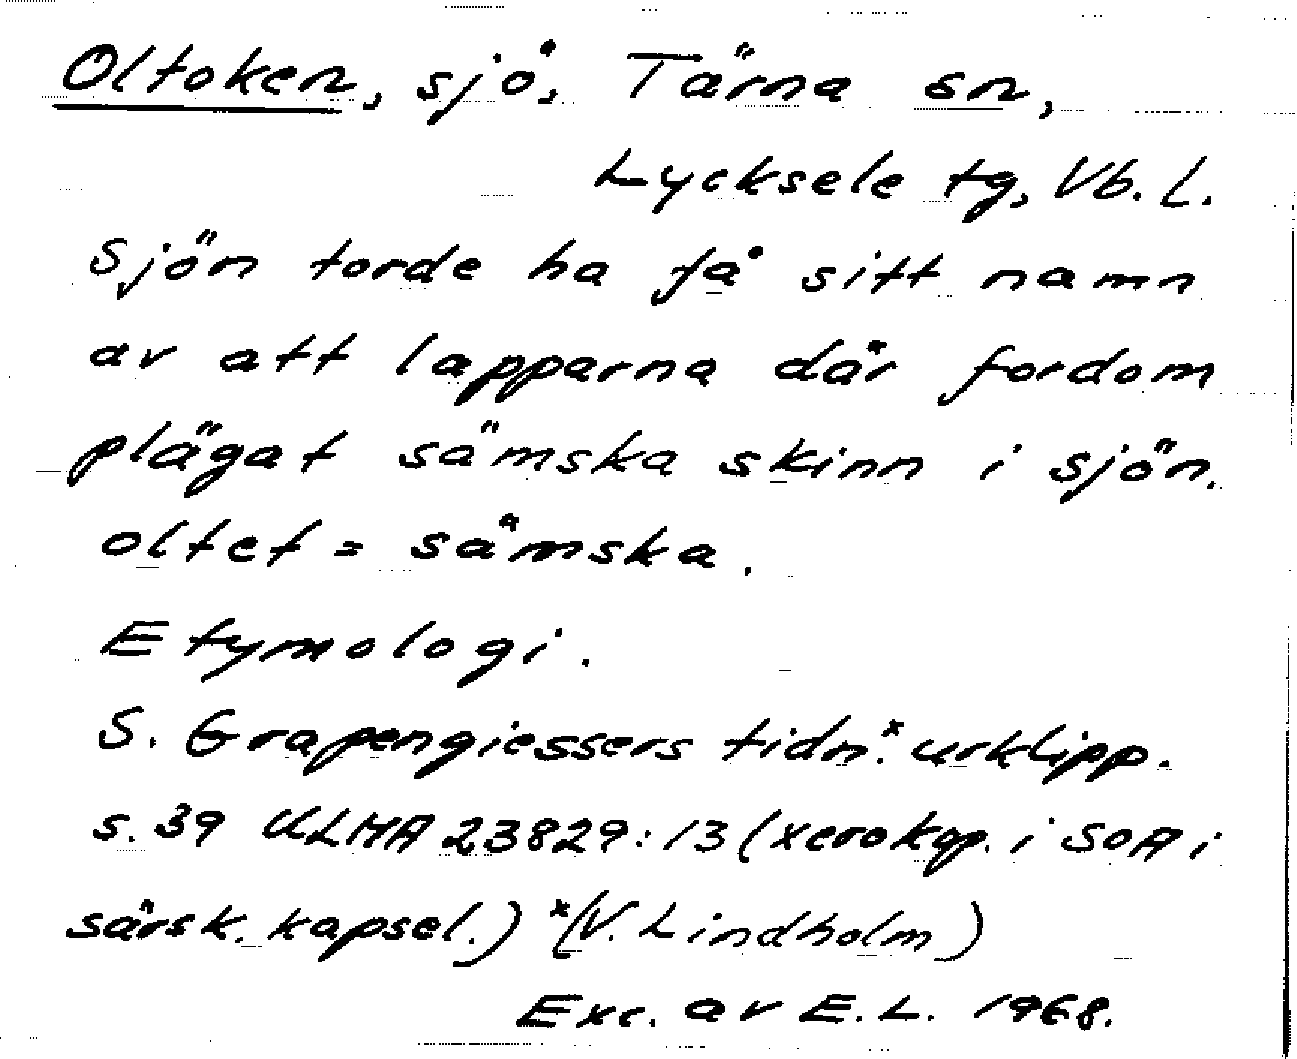 Oltoken, sjö, Tärna sn,
Lycksele tg, Vb. L.
Sjön torde ha få sitt namn
av att lapparna där fordom
plägat sämska skinn i sjön.
oltet = sämska.
Etymologi.
S. Grapengiessers tidn.* urklipp.
s. 39 ULMA 23829:13 (xerokop. i SOA i
särsk. kapsel.) *(V. Lindholm)
Exc. av E. L. 1968.